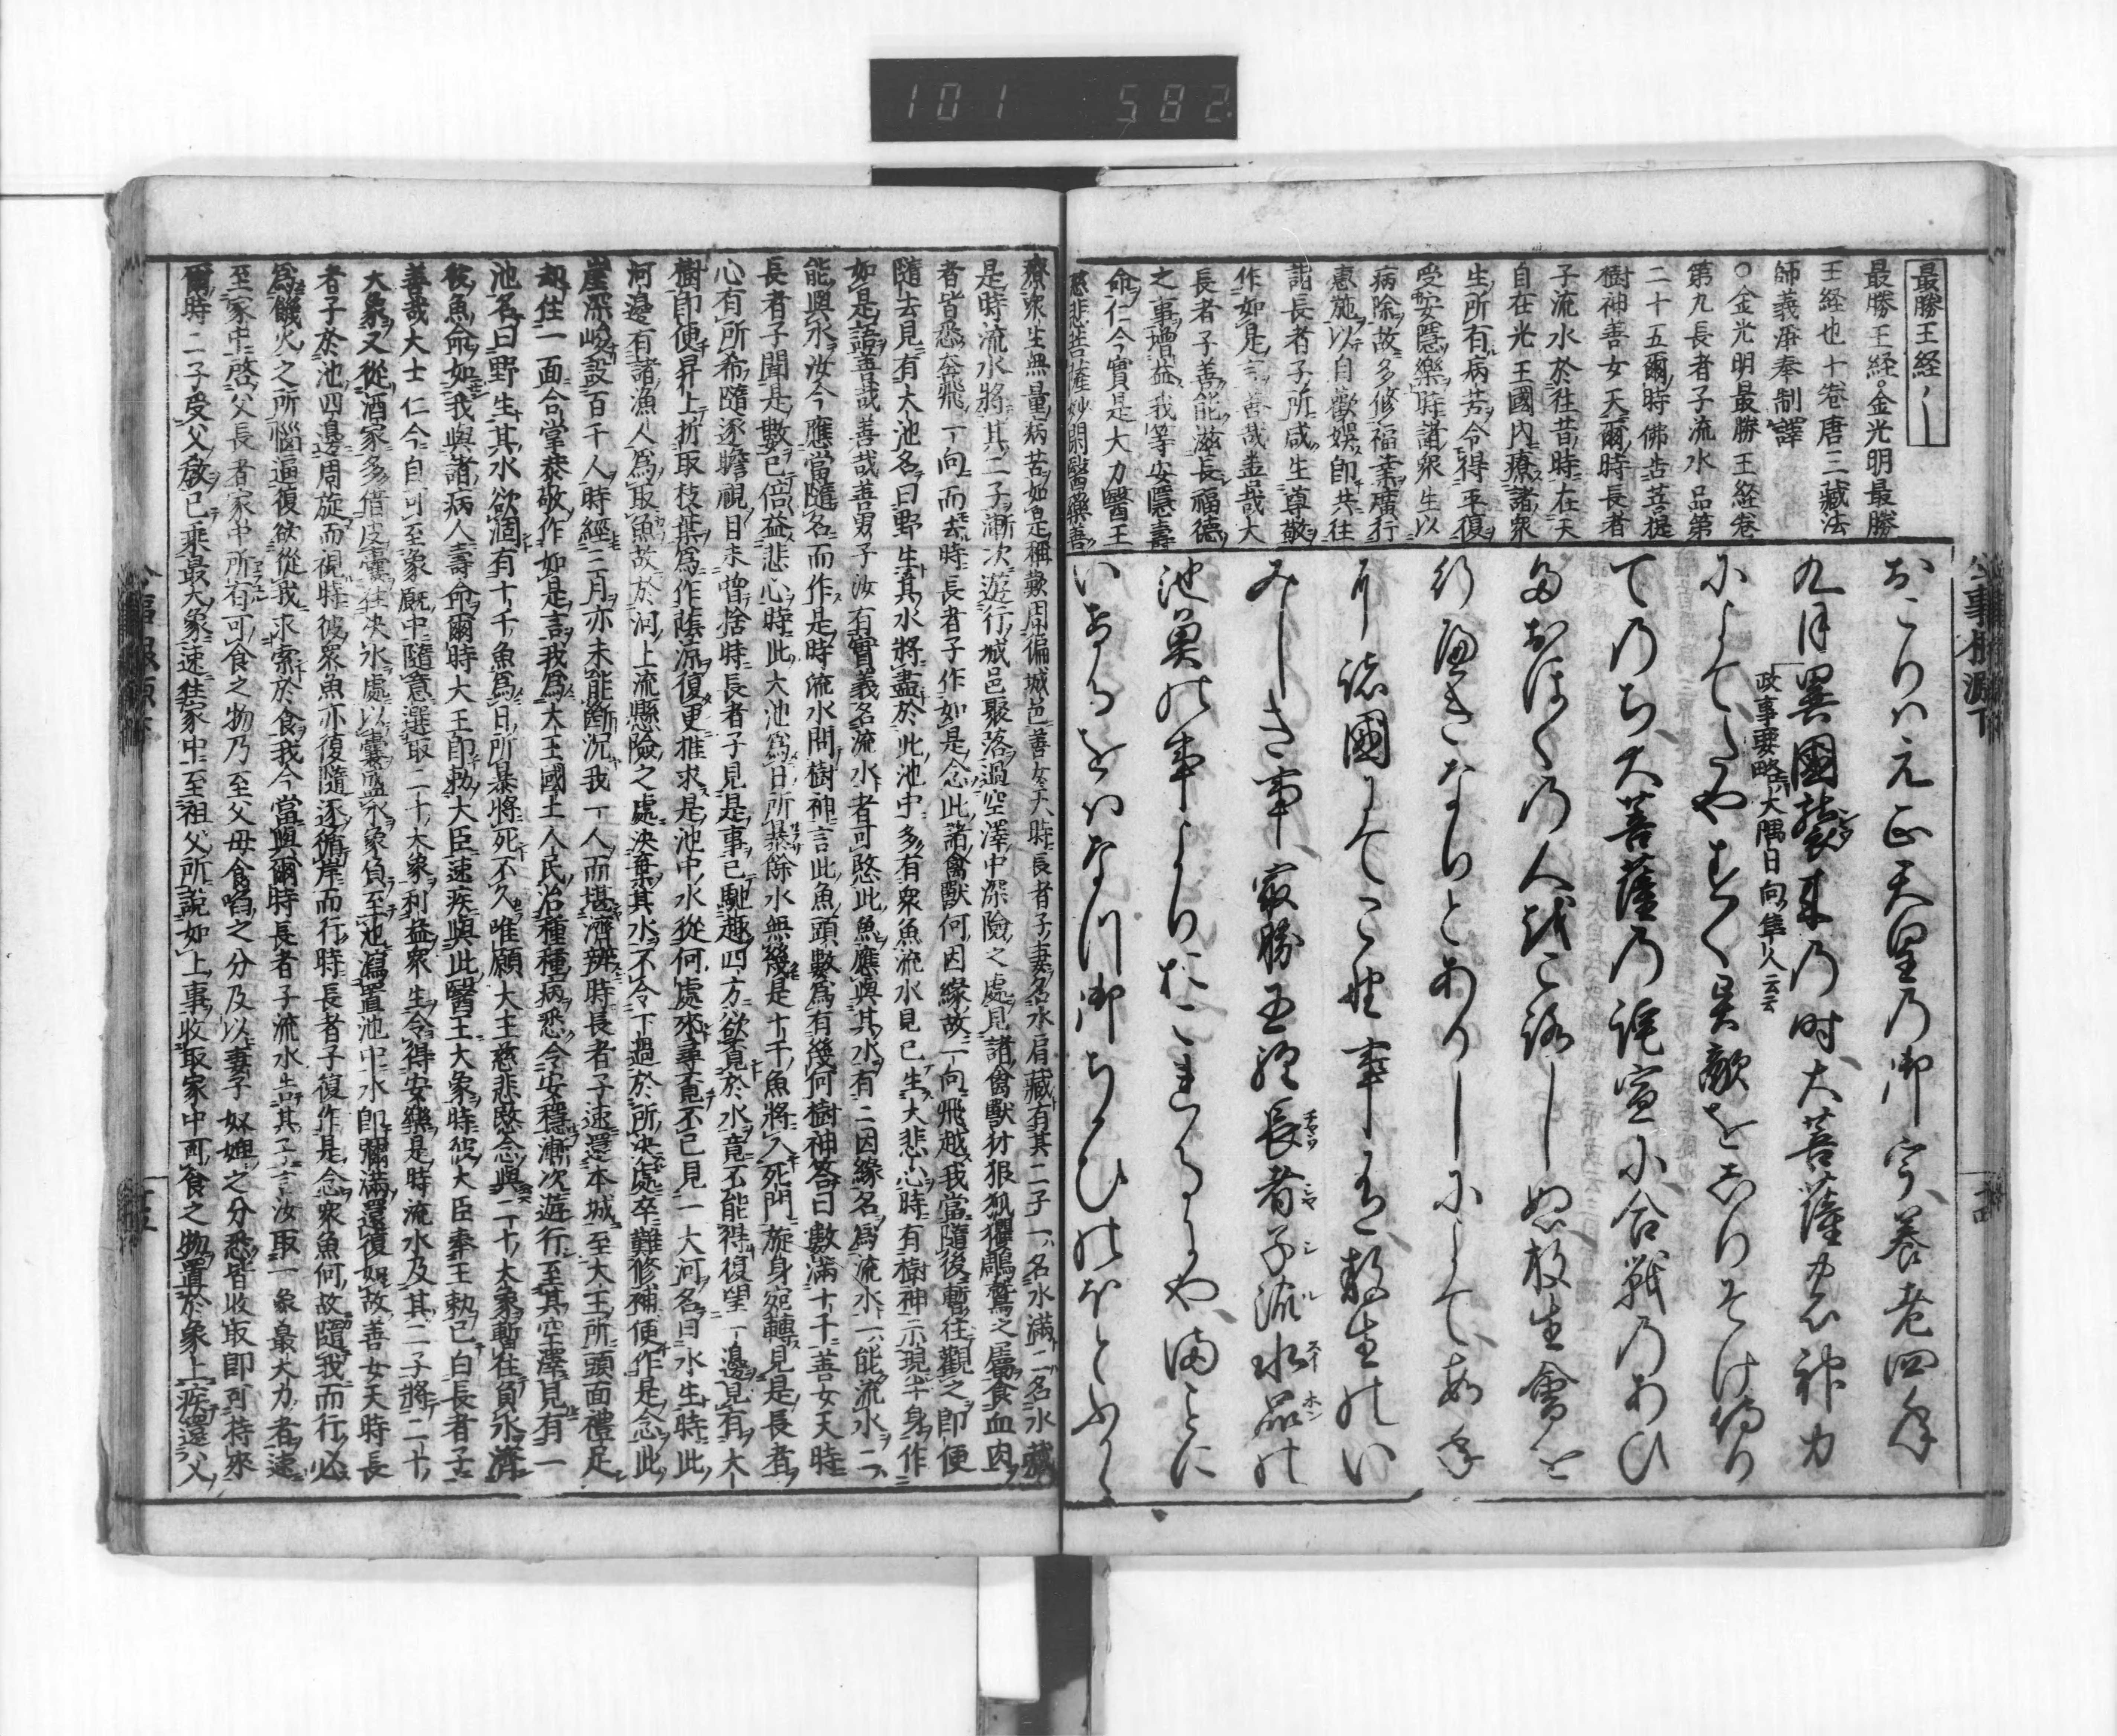 101 582
最勝王経
最勝王経。金光明最勝
王経也十巻唐三藏法
師義淨奉制譯
○金光明最勝王経巻
第九長者子流水品第
二十五爾時佛告菩提
樹神善女天爾時長者
子流水於往昔時在天
自在光王國內療諸衆
生所有病苦令得平復
受安隱樂時諸衆生以
病除故多修福業廣行
惠施以自歡娛即共往
詣長者子所咸生尊敬
作如是言善哉善哉大
長者子善能滋長福德
之事增益我等安隱壽
命仁今實是大力醫王
慈悲菩薩妙閑醫藥善
おこりハ元正天皇乃御宇、養老四年
九月異國襲来乃時、大菩薩力を神力
政事要略 大隅日向隼人云云
によて、たやすく異敵をしりそけ給り
て乃ち、大菩薩乃託宣に、合戦乃あひ
多おほく乃人を殺しぬ、放生會を
行へきなりとありしによて、毎年
諸國にてこの事有、放生のい
みしき事、最勝王経長者子流水品の
池魚の事よりおこれるにや、まことに
療衆生無量病苦如是稱歎周徧城邑善女天時長者子妻名水肩藏有其二子一名水滿二名水藏
是時流水將其二子漸次遊行城邑聚落過空澤中深險之處見諸禽獸犲狼狐玃鵰鷲之屬食血肉
者皆悉奔飛一向而去時長者子作如是念此諸禽獸何因緣故一向飛越我當隨後暫往觀之即便
隨去見有大池名曰野生其水將盡於此池中多有衆魚流水見已生大悲心時有樹神示現半身作
如是語善哉善哉善男子汝有實義名流水者可愍此魚應與其水有二因緣名爲流水一能流水二
能與水汝今應當隨名而作是時流水問樹神言此魚頭數爲有幾何樹神答曰數滿十千善女天時
長者子聞是數已倍益悲心時此大池爲日所暴餘水無幾是十千魚將入死門旋身宛轉見是長者
心有所希隨逐瞻視目未曾捨時長者子見是事已馳趣四方欲覓於水竟不能得復望一邊見有大
樹即便昇上折取枝葉爲作蔭涼復更推求是池中水從何處來尋覓不已見一大河名曰水生時此
河邊有諸漁人爲取魚故於河上流懸險之處決棄其水不令下過於所決處卒難修補便作是念此
崖深峻設百千人時經三月亦未能斷況我一人而堪濟辨時長者子速還本城至大王所頭面禮足
却住一面合掌恭敬作如是言我爲大王國土人民治種種病悉令安穩漸次遊行至其空澤見有一
池名曰野生其水欲涸有十千魚爲日所暴將死不久唯願大王慈悲愍念與二十大象暫往負水濟
彼魚命如我與諸病人壽命爾時大王即勅大臣速疾與此醫王大象時彼大臣奉王勅已白長者子
善哉大士仁今自可至象厩中隨意選取二十大象利益衆生令得安樂是時流水及其二子將二十
大象又從酒家多借皮囊往決水處以囊盛水象負至池瀉置池中水即彌滿還復如故善女天時長
者子於池四邊周旋而視時彼衆魚亦復隨逐循岸而行時長者子復作是念衆魚何故隨我而行必
爲饑火之所惱逼復欲從我求索於食我今當與爾時長者子流水告其子言汝取一象最大力者速
至家中啓父長者家中所有可食之物乃至父母食啗之分及以妻子奴婢之分悉皆收取即可持來
爾時二子受父教已乘最大象速往家中至祖父所說如上事收取家中可食之物置於象上疾還父